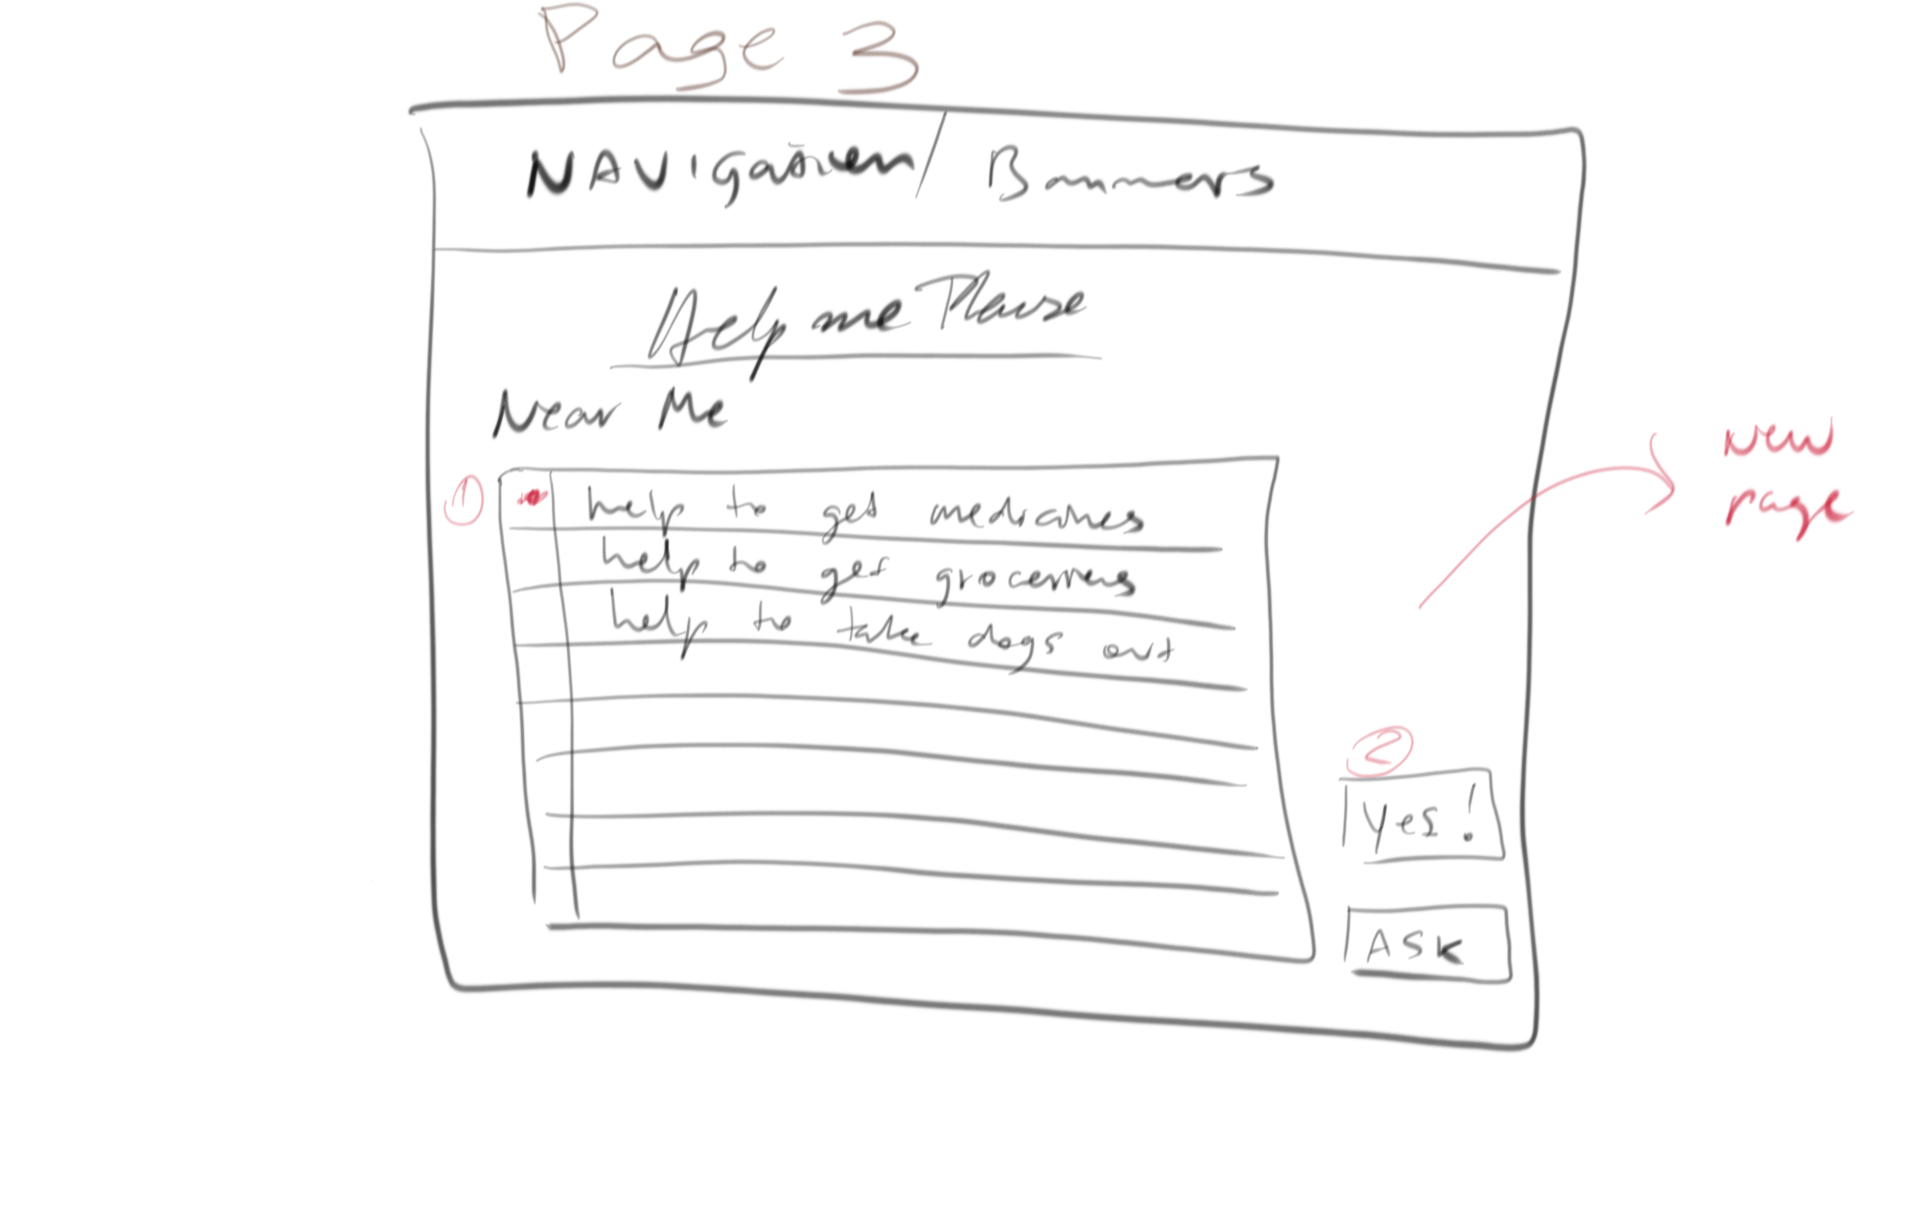 Page 3
NAVIGation / Banners
Help me Please
Near Me
1
help to get medicines
help to get groceries
help to take dogs out
new
page
2
Yes!
ASK